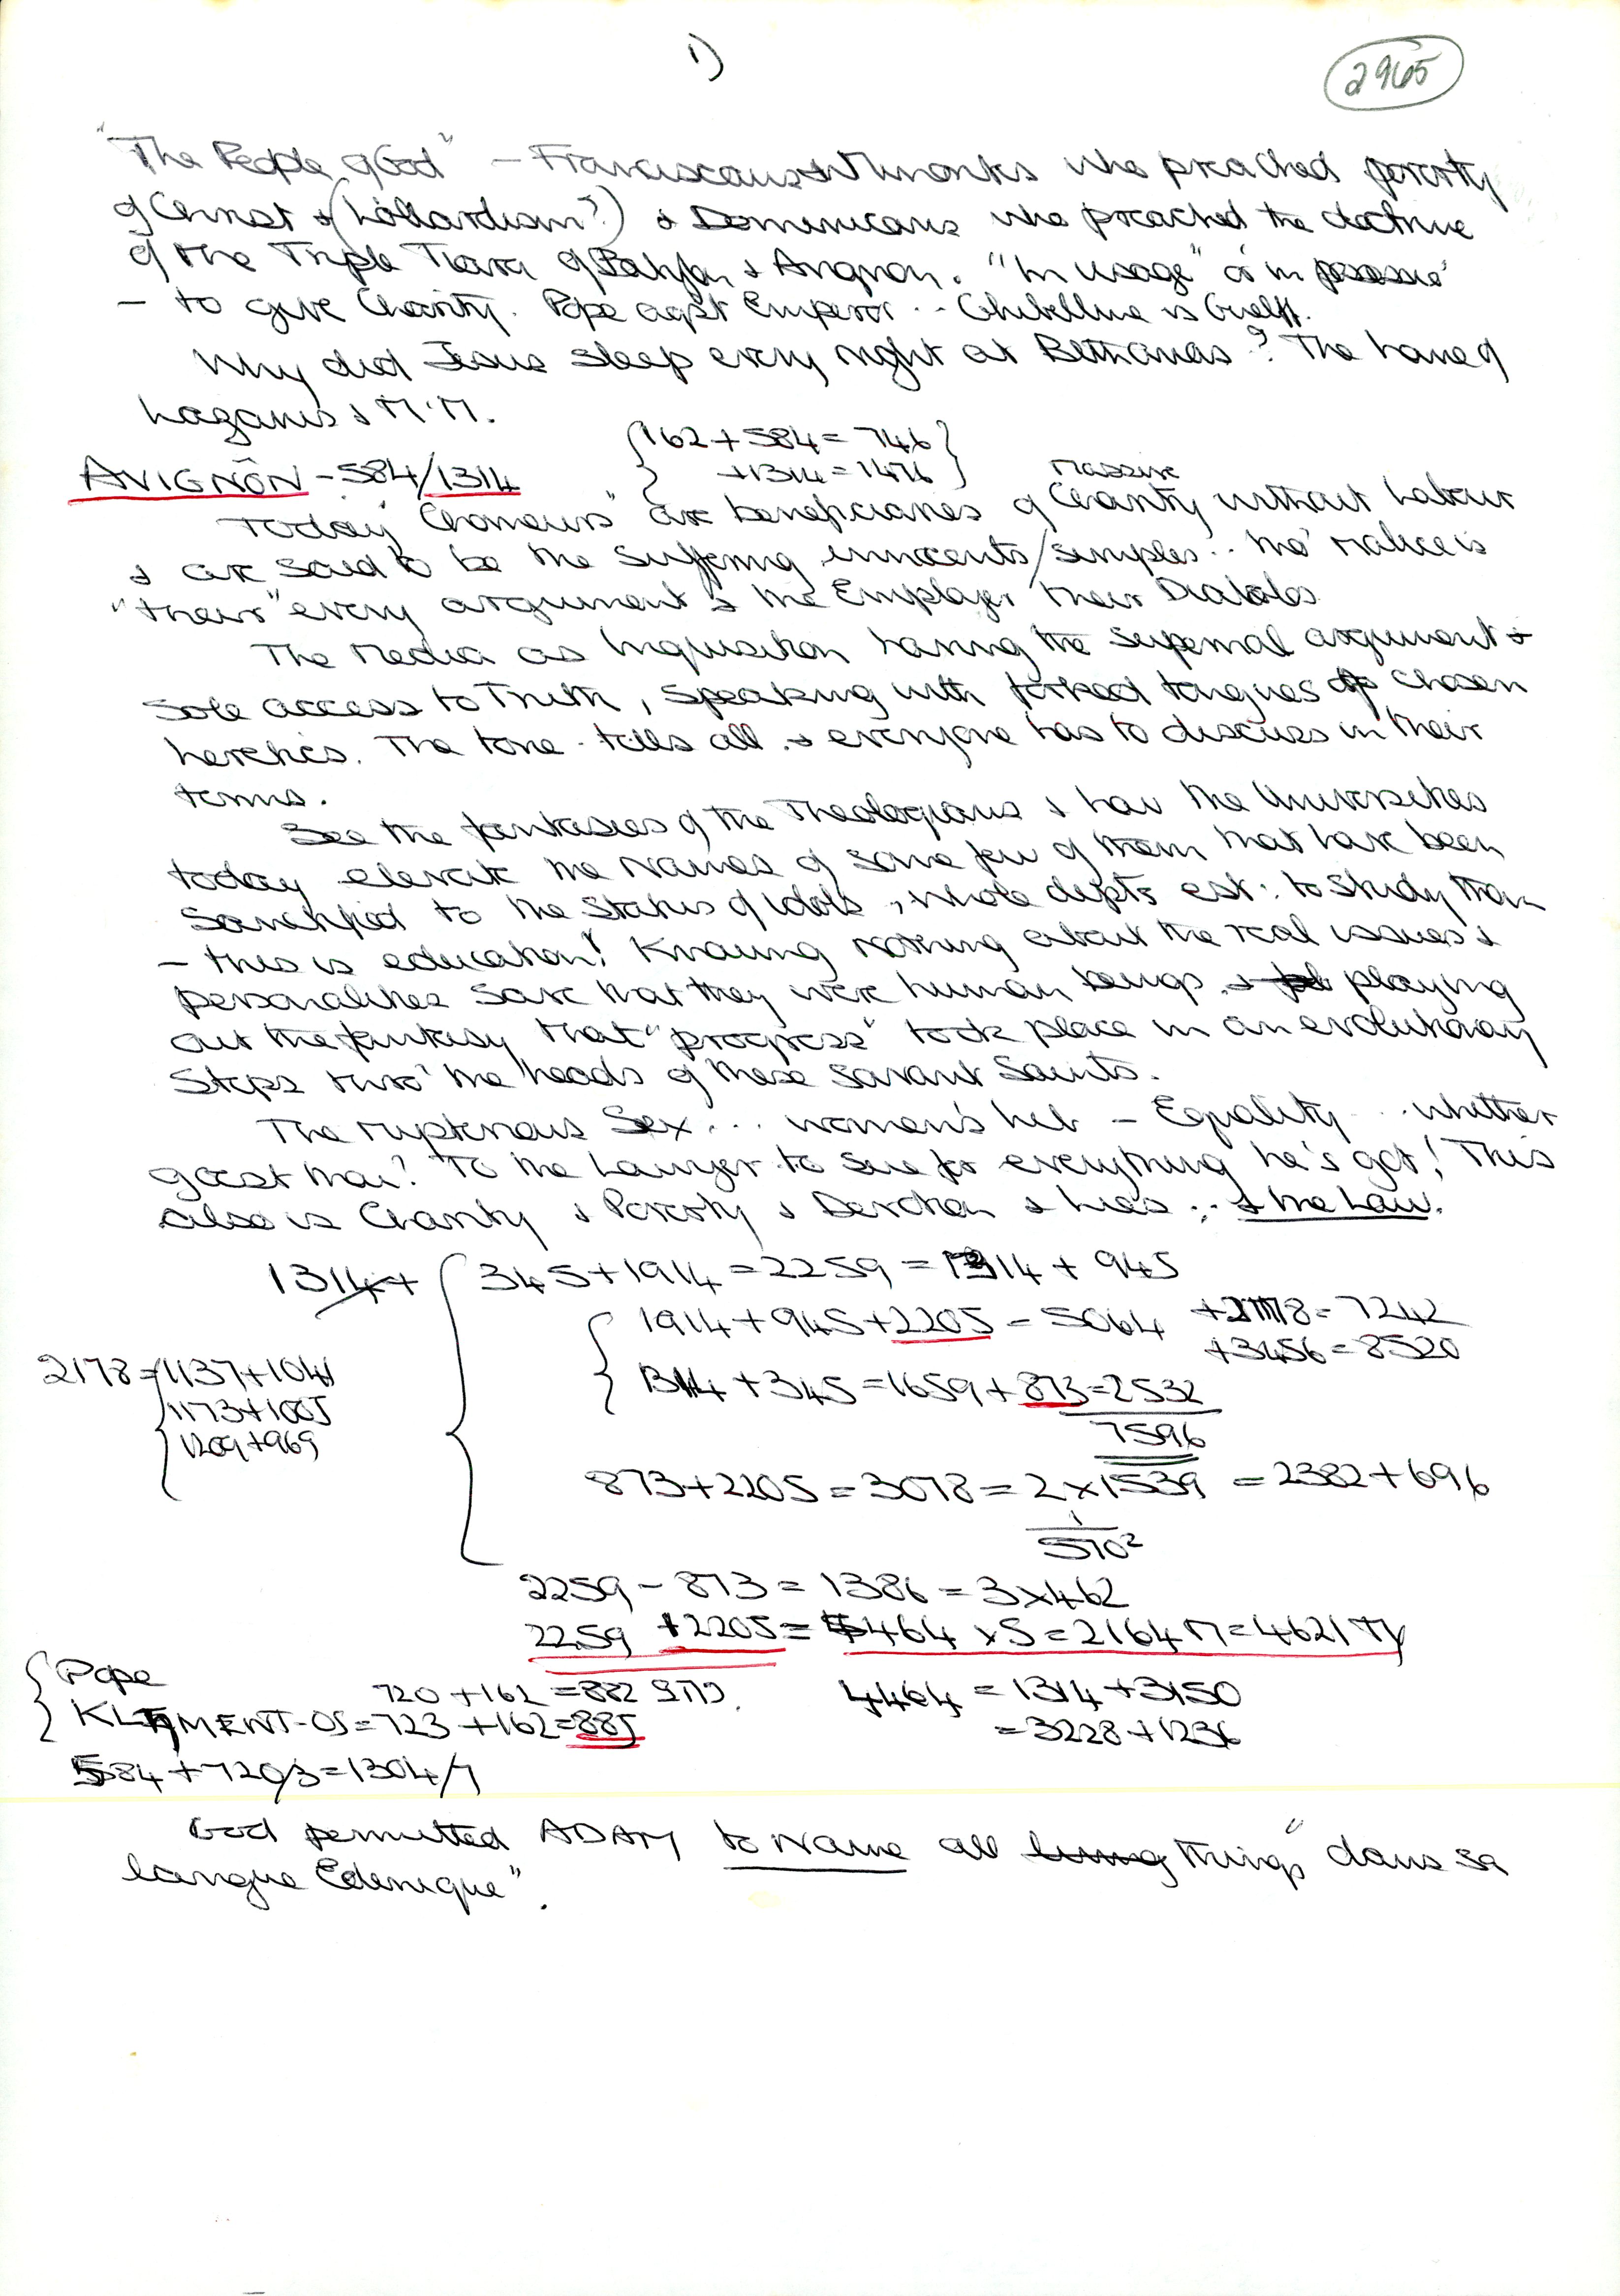 1)
2965
"The People of God" – Franciscans & monks who preached poverty
of Christ & (Lollardism?) & Dominicans who preached the doctrine
of the Triple Tiara of & Avignon. "In usage" or in
– to give Charity. Pope agst Emperor .. Ghibelline vs Guelf.
Why did Jesus sleep every night at Bethanas? The home of
Lazarus & M.M.
{162+584=746}
{+1314=1476}
AVIGNÔN – 584/1314
massive
Today "Chomeurs" are beneficiaries of Charity without Labour
& are said to be the suffering innocents/simples .. tho' malice is
"their" every argument & the Employer their Diabolos
The Media as Inquisition having the supernal argument &
Sole access to Truth, speaking with forked tongues of chosen
heretics. The tone tells all & everyone has to discuss in their
terms.
See the fantasies of the Theologians & how the Universities
today elevate the Names of some few of them that have been
Sanctified to the status of Idols, whole depts est: to study them
– this is education! Knowing nothing about the real issues &
personalities save that they were human beings & playing
out the fantasy that "progress" took place in an evolutionary
Steps thro' the heads of these Savant Saints.
The mysterious Sex ... women's lib – Equality .. whither
goest thou? To the Lawyer to sue for everything he's got! This
also is Charity & Poverty & & Lies .. & the Law.
1314+ { 345+1914=2259=1314+945
{ 1914+945+2205=5064 +2178=7242
+3456=8520
2178={1137+1041
{ 1314+345=1659+873=2532
1173+1005
7596
1209+969
873+2205=3078=2×1539=2382+696
570²
2259–873=1386=3×462
2259+2205=4464×5=2164M=4621M
{Pope
720+162=882
4464=1314+3150
KLEMENT-OS=723+162=885
=3228+1236
584+720/3=1304/7
God permitted ADAM to Name all living things "dans sa
langue Edenique".